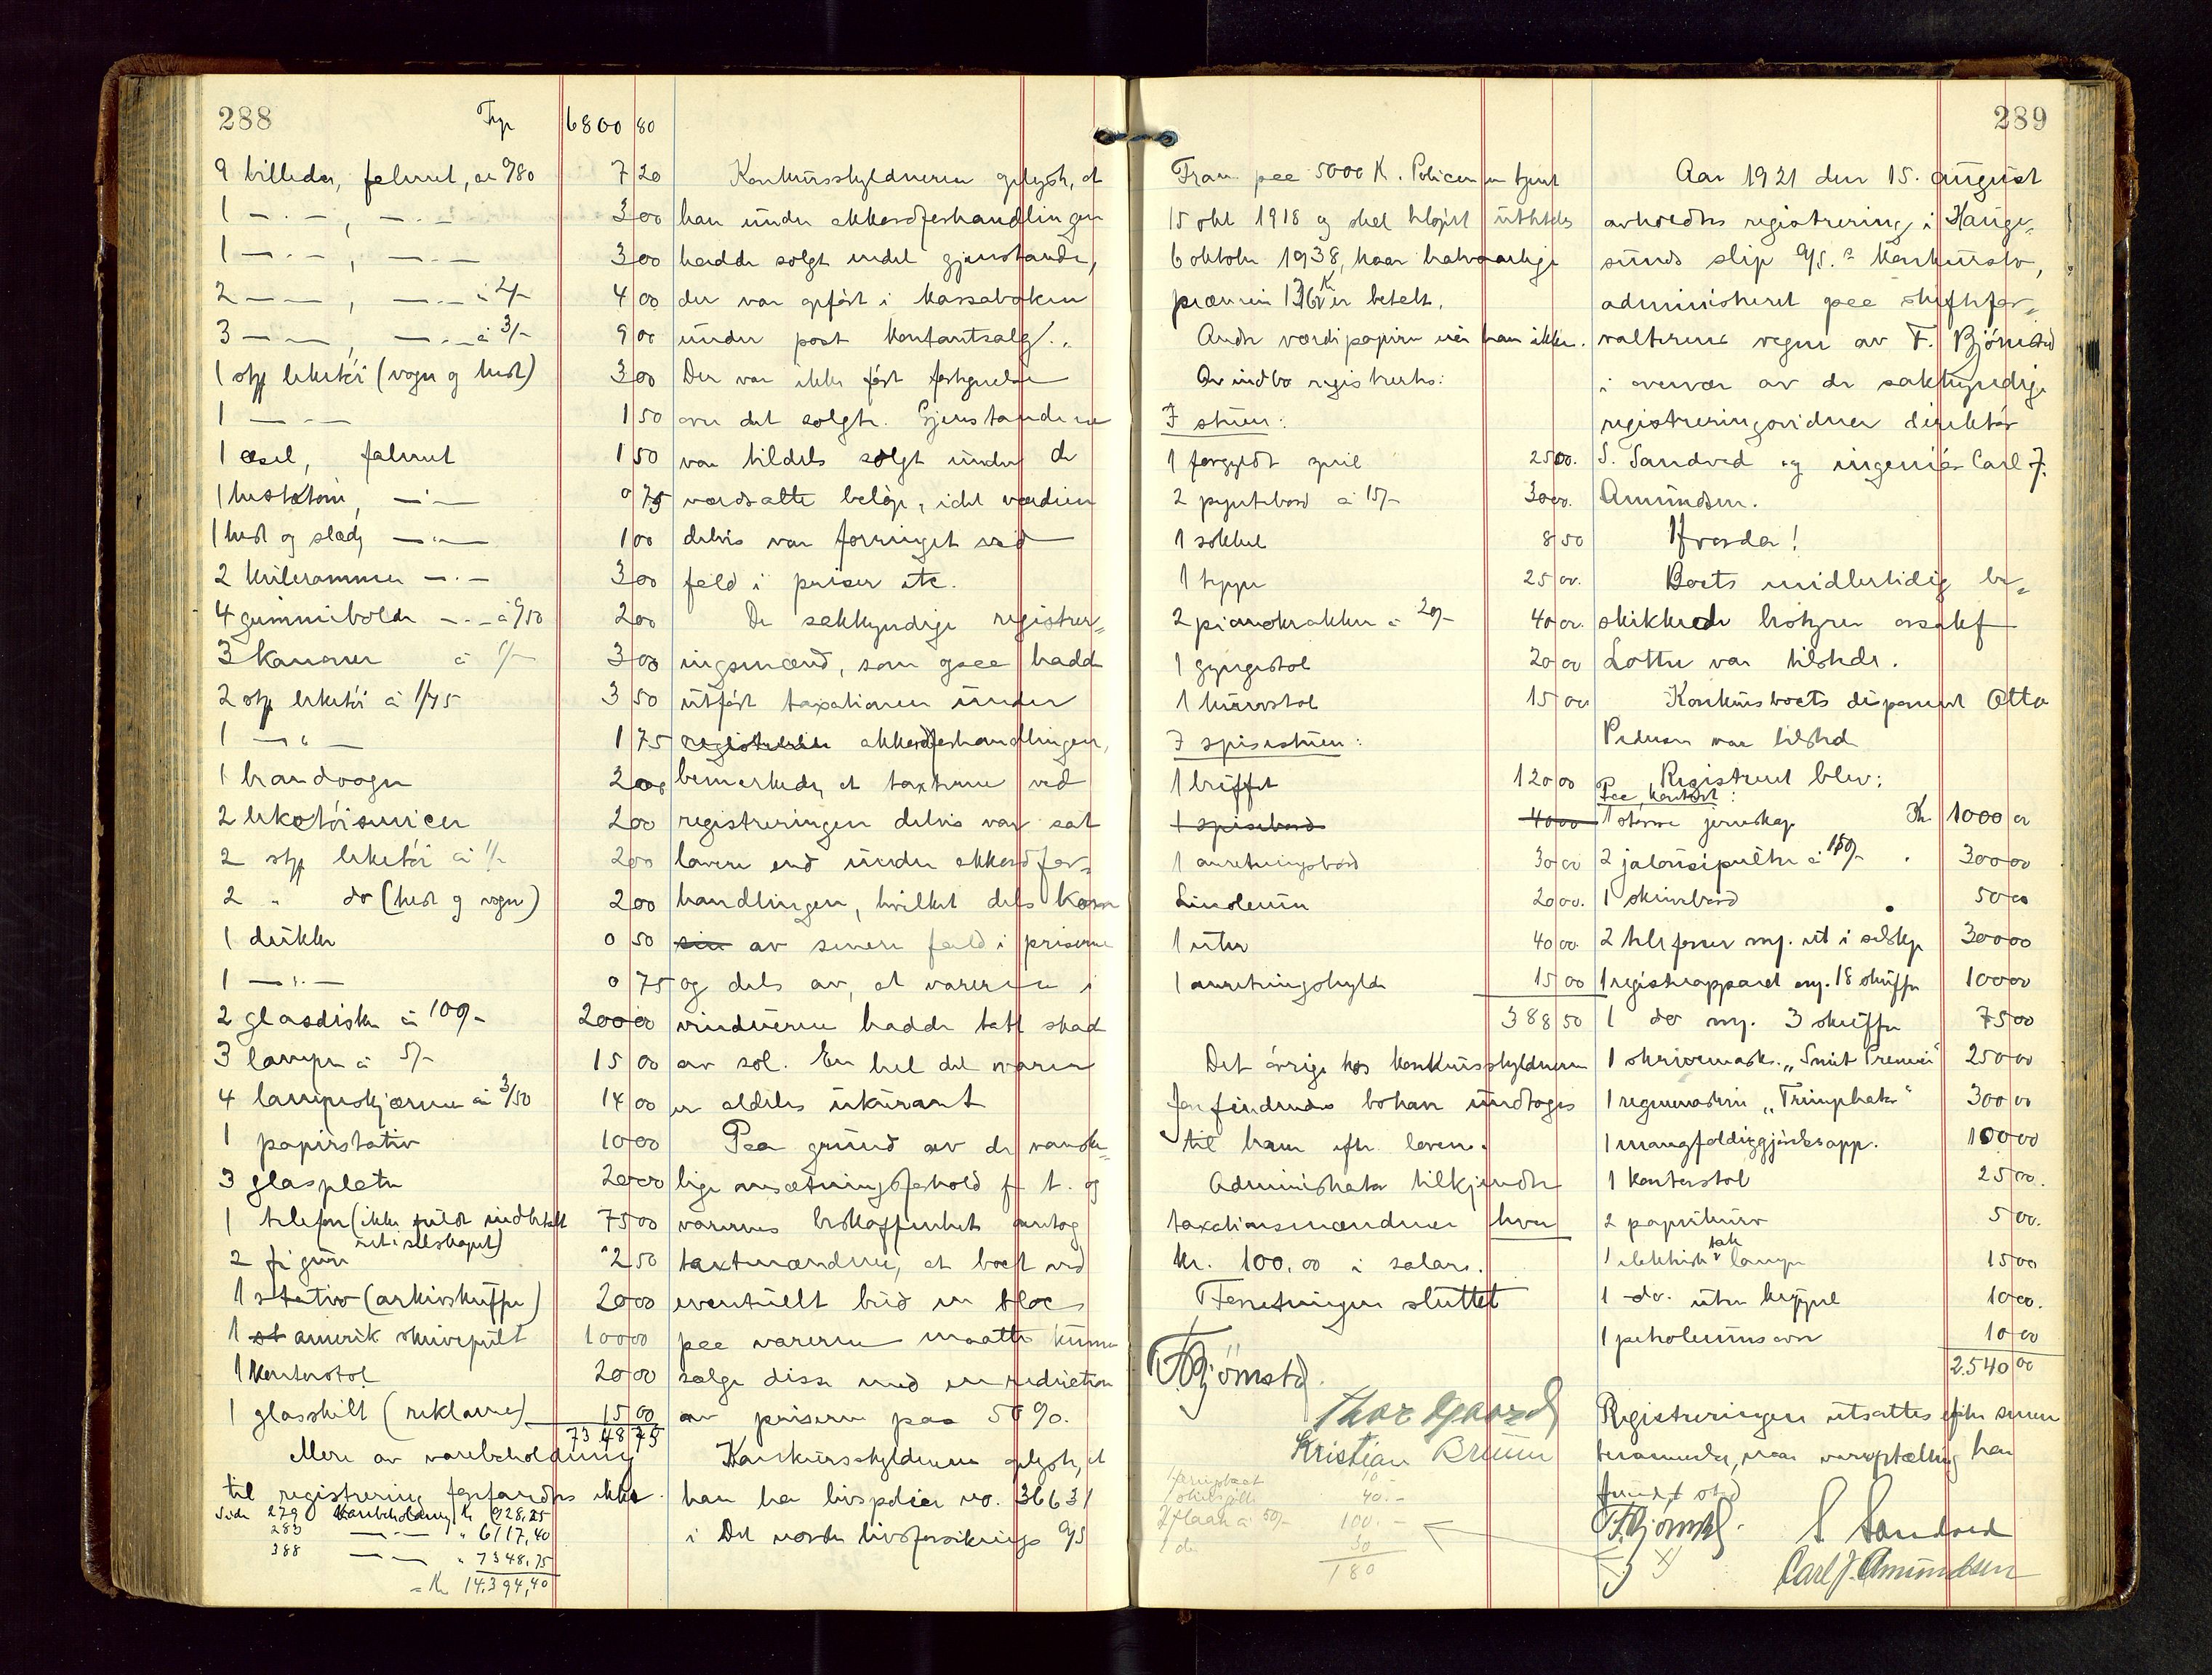 288
Trp 6800 80
9 billeder, falmet, à 0/80 7 20
1 —"—, —"— 3 00
1 —"—, —"— 3 00
2 —"—, —"— à 2/- 4 00
3 —"—, —"— à 3/- 9 00
1 stp leketøi (vogn og hest) 3 00
1 —"— 1 50
1 æsel, falmet 1 50
1 hest, —"— 0 75
1 hest og slæde —"— 1 00
2 —"— 3 00
4 gummibolde —"— à 0/50 2 00
3 Kanoner à 1/- 3 00
2 stp leketøi à 1/75 3 50
1 —"— 1 75
1 brandvogn 2 00
2 leketøiservicer 2 00
2 stp leketøi à 1/- 2 00
2 " do (hest og vogn) 2 00
1 dukke 0 50
1 —"— 0 75
2 glasdiske à 100/- 200 00
3 lamper à 5/- 15 00
4 lampeskjærme à 3/50 14 00
1 papirstativ 10 00
3 glasplater 20 00
1 telefon (ikke fuldt indbetalt 75 00
ut i selskapet)
2 figurer 2 50
1 stativ (arkivskuffer) 20 00
1 st amerik skrivepult 100 00
1 Kontorstol 20 00
1 glasskilt (reklame) 15 00
7348 75
Mere av varebeholdning
til registrering forfandtes ikke.
Side 279 Varebeholdning kr 928,25
283 —"— " 6117,40
388 —"— " 7348,75
= Kr 14,394,40
Konkursskyldneren oplyste, at
han under akkordforhandlingen
hadde solgt endel gjenstande,
der var opført i kassaboken
under post Kontantsalg.
Der var ikke ført fortegnelse
over det solgte. Gjenstandene
var tildels solgt under de
værdsatte beløp, idet værdien
delvis var forringet ved
fald i priser etc.
De sakkyndige registrer=
ingsmænd, som ogsaa hadde
utført taxationen under
registrerin akkordforhandlingen,
bemerkede, at taxterne ved
registreringen delvis var sat
lavere end under akkordfor=
handlingen, hvilket dels kom
sin av senere fald i priserne
og dels av, at varerne i
vinduerne hadde tatt skade
av sol. En hel del varer
er aldeles ukurant
Paa grund av de vanske=
lige omsætningsforhold f. t. og
varernes beskaffenhet antog
taxtmændene, at boet ved
eventuellt bud en bloc
paa varerne maatte kunne
sælge disse med en reduction
av priserne paa 50%.
Konkursskyldneren oplyste, at
han har livspolice no. 36631
i Det norske livsforsikrings A/S
289
Fram paa 5000 K. Policen er tegnet
15 okt 1918 og skal utbetales
6 oktober 1938, hvor halvaarlige
præmie 136 K er betalt.
Andre værdipapirer eier han ikke.
Av indbo registrertes:
I stuen:
1 forgyldt speil 25 00.
2 pyntebord à 15/- 30 00.
1 sokkel 8 50
1 teppe 25 00.
2 pianokrakker à 20/- 40 00.
1 gyngestol 20 00
1 kurvstol 15 00
I spisestuen:
1 buffet 120 00
1 spisebord 40 00
1 anretningsbord 30 00
Linoleum 20 00.
1 uhr 40 00
1 anretningshylde 15 00
388 50
Det øvrige hos konkursskyldneren
forefindende bohave undtoges
til ham efter loven.
Administrator tilkjendte
taxationsmændene hver
kr. 100.00 i salær.
Forretningen sluttet
F Bjørnstd.
Thor Gaard
Kristian Bruun
10.-
40.-
à 50/- 100.-
30
180
Aar 1921 den 15. august
avholdtes registrering i Hauge=
sunds slip A/S.s Konkursbo,
administreret paa skiftefor=
valterens vegne av F. Bjørnstad
i overvær av de sakkyndige
registreringsvidner direktør
S. Sandved og ingeniør Carl J.
Amundsen.
Hvorda!
Boets midlertidig be=
skikkede bestyrer o.r.sakf
Lothe var tilstede.
Konkursboets disponent Otto
Pedersen var tilstede
Registreret blev:
Paa kontoret:
1 større jernskap Kr. 1000 00
2 jalousipulter à 150/- 300 00
1 skrivebord 50 00
2 telefoner m. ut i selskap 300 00
1 registerapparat m. 18 skuffer 100 00
1 do m. 3 skuffer 75 00
1 skrivemask. „Smit Premier" 250 00
1 regnemaskin „Triumphator" 300 00
1 mangfoldiggjørelsesapp. 100 00
1 Kontorstol 25 00.
2 papirkurv 5 00.
1 elektrisk tak lampe 15 00
1 do. uten kuppel 10 00.
1 petroleumsovn 10 00
2.540 00
Registreringen utsattes efter senere
berammelse, naar vareoptælling har
fundet sted
F Bjørnstd. S Sandved
Carl J. Amundsen